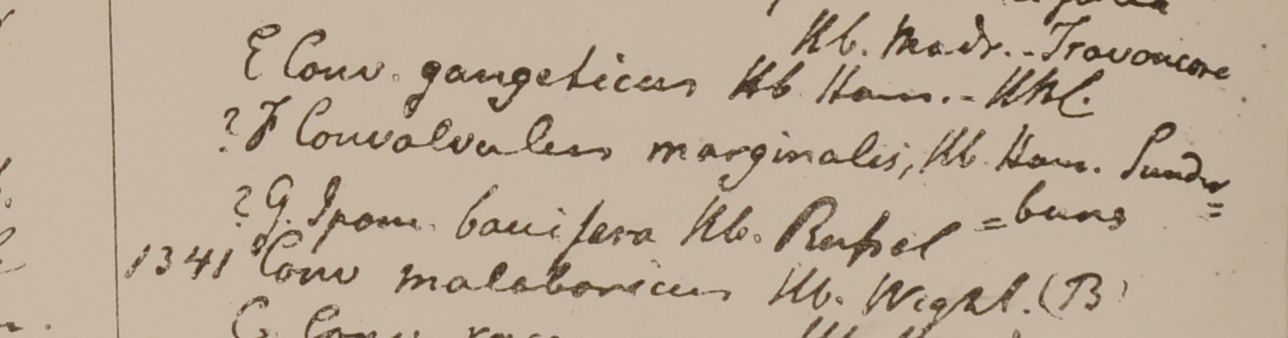 Hb. Madr. - Travancore
E Conv. gangeticus Hb Ham. - HRC.
? F Convolvulus marginalis, Hb. Ham. Sundr=
=buns
? G. Ipom. baccifera Hb. Russel
1341 Conv malabaricus Hb. Wight. (B)
C. Conv.